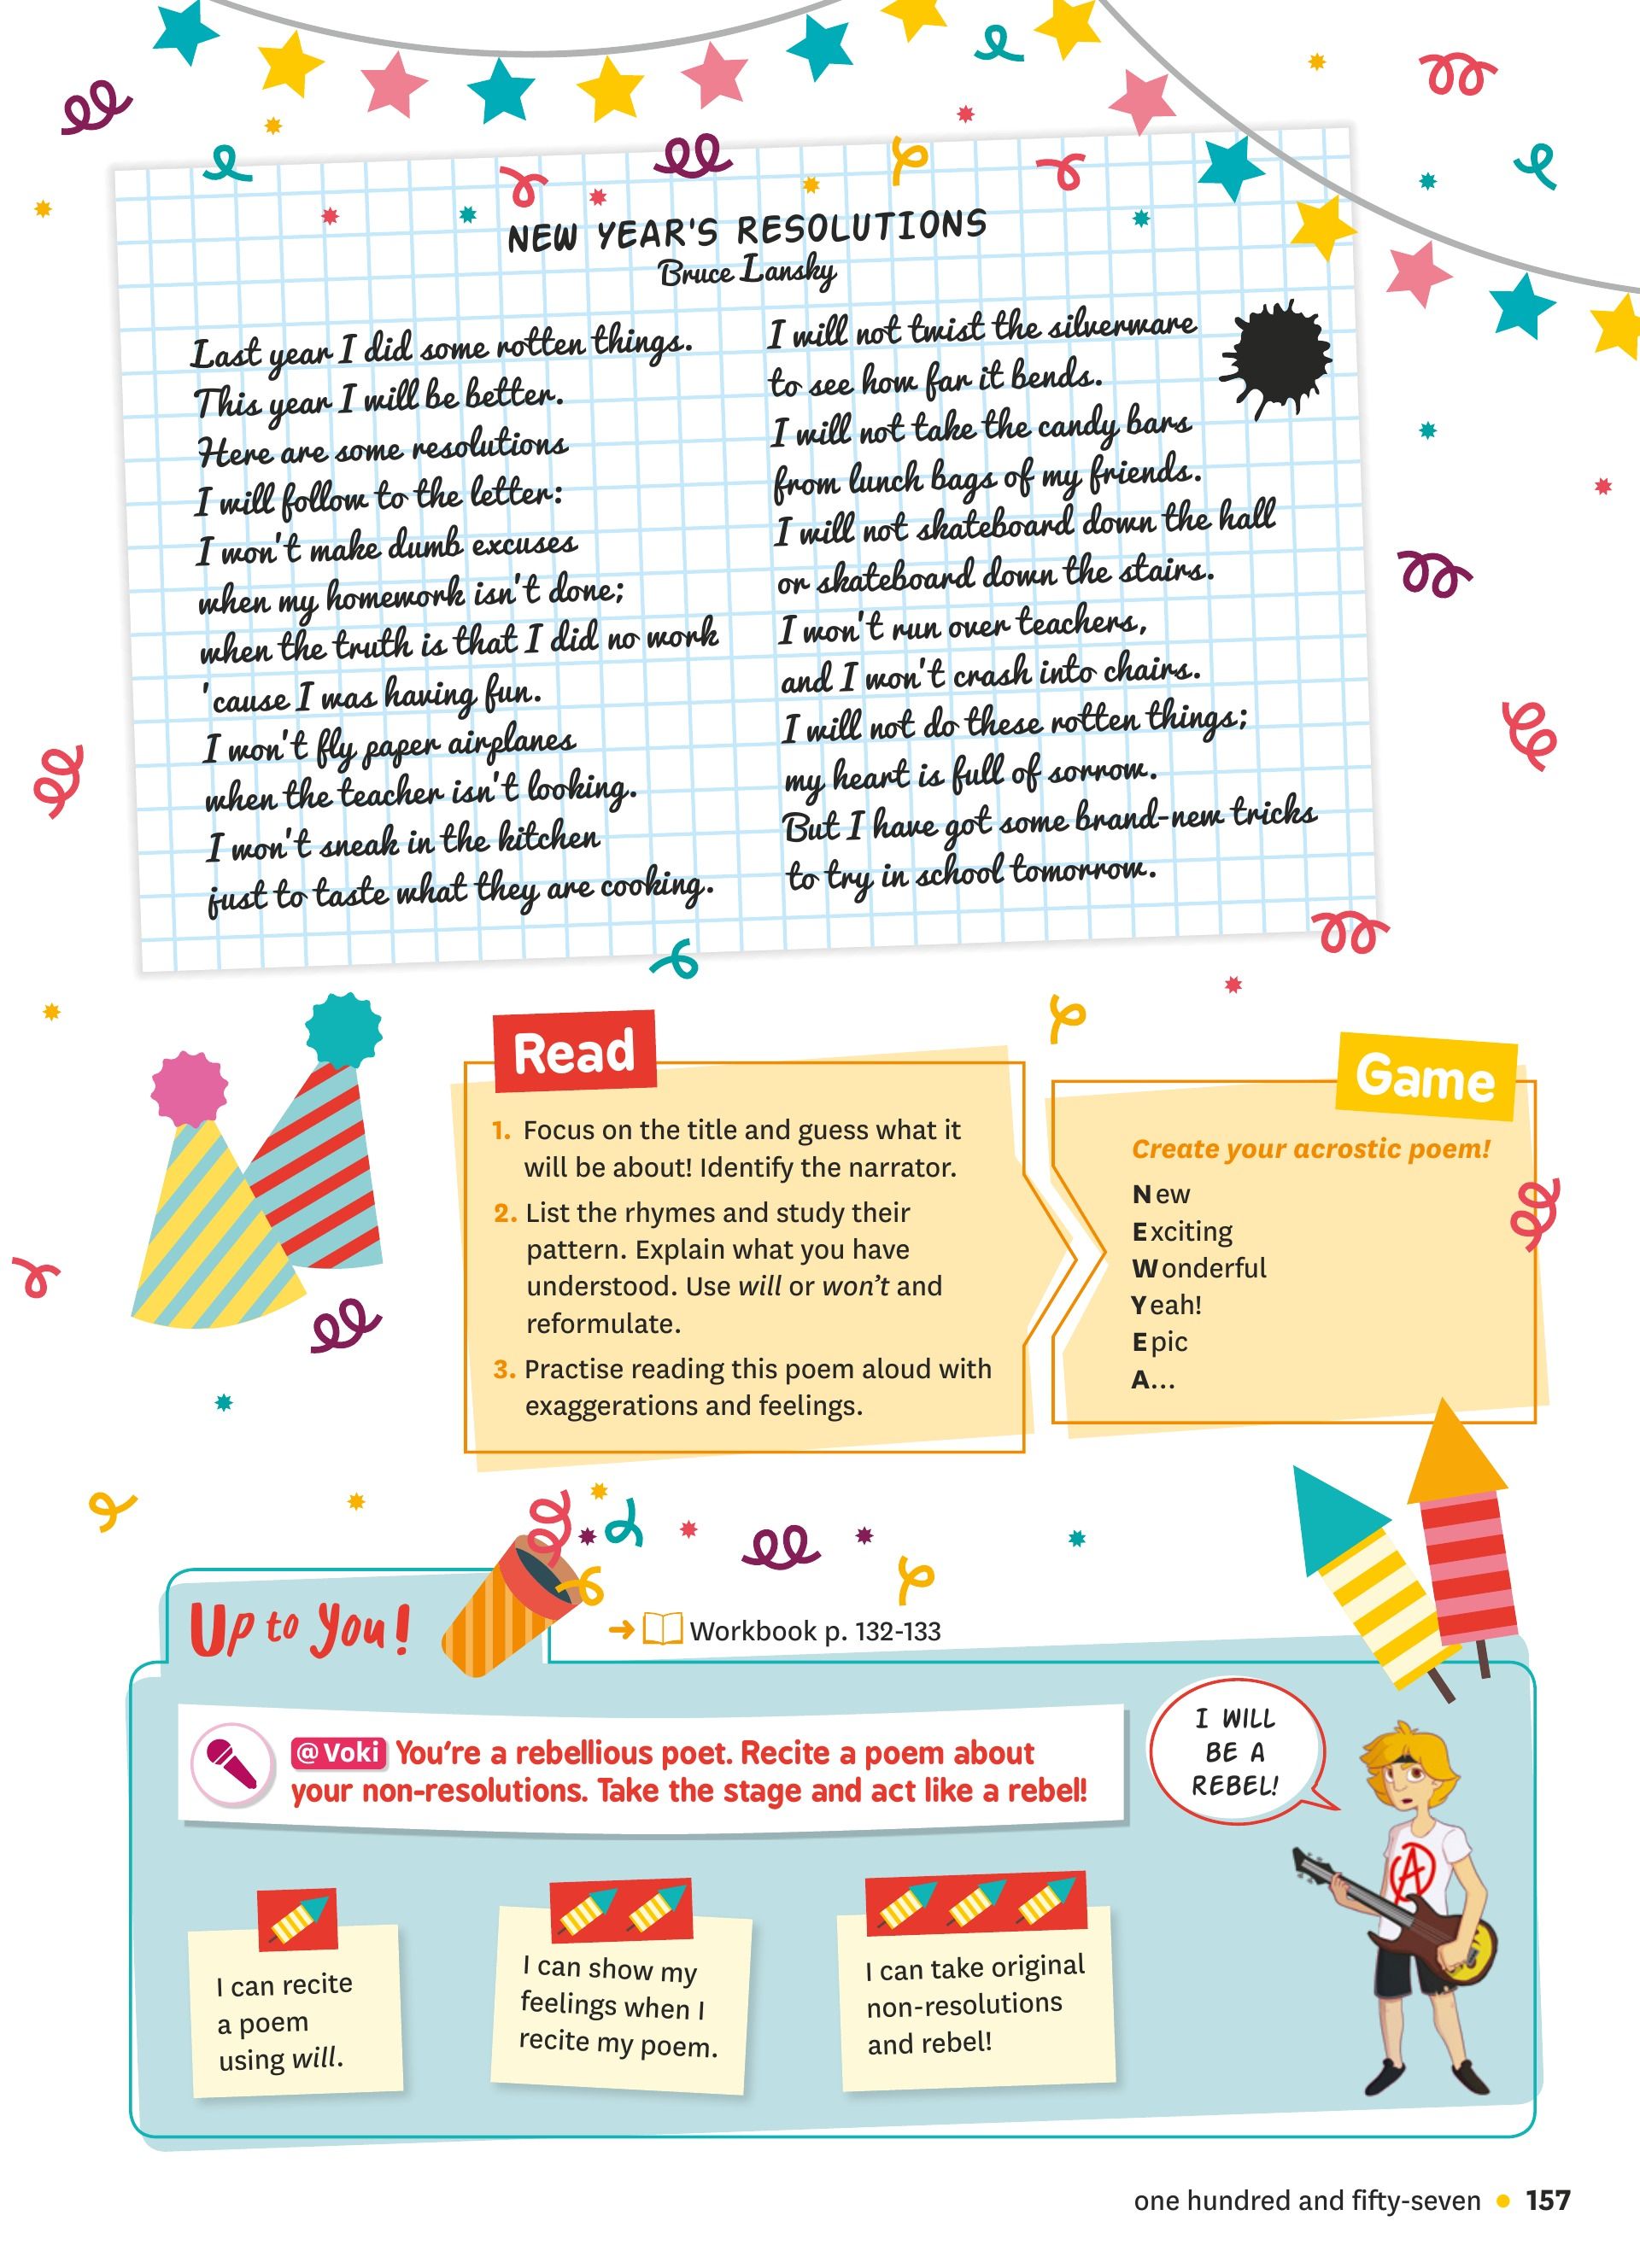 NEW YEAR'S RESOLUTIONS
Bruce Lansky
Last year I did some rotten things.
This year I will be better.
Here are some resolutions
I will follow to the letter:
I won't make dumb excuses
when my homework isn't done;
when the truth is that I did no work
'cause I was having fun.
I won't fly paper airplanes
when the teacher isn't looking.
I won't sneak in the kitchen
just to taste what they are cooking.
I will not twist the silverware
to see how far it bends.
I will not take the candy bars
from lunch bags of my friends.
I will not skateboard down the hall
or skateboard down the stairs.
I won't run over teachers,
and I won't crash into chairs.
I will not do these rotten things;
my heart is full of sorrow.
But I have got some brand-new tricks
to try in school tomorrow.
Read
1. Focus on the title and guess what it
will be about! Identify the narrator.
2. List the rhymes and study their
pattern. Explain what you have
understood. Use will or won't and
reformulate.
3. Practise reading this poem aloud with
exaggerations and feelings.
Game
Create your acrostic poem!
New
Exciting
Wonderful
Yeah!
Epic
A...
Up to You!
→ Workbook p. 132-133
@Voki You're a rebellious poet. Recite a poem about
your non-resolutions. Take the stage and act like a rebel!
I WILL
BE A
REBEL!
A
I can recite
a poem
using will.
I can show my
feelings when I
recite my poem.
I can take original
non-resolutions
and rebel!
one hundred and fifty-seven • 157